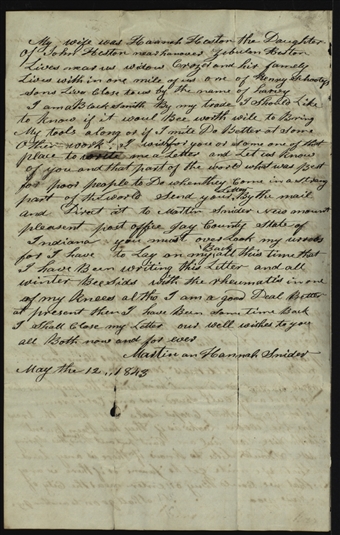 My wife was Hannah Heston the Daughter
of John Heston
Lives near us widow Crozer and her family
Lives with in one mile of us one of Henry
sons Live Close to us by the name of
I am a Black smith By my trade I Should Like
to know if it woul Bee worth wile to Bring
My tools along or if I mite Do Better at some
Other work I want you or some one of that
place to write me a Letter and Let us know
of you and that part of the world what was Best
for poor people to Do when they Come in a
part of the world Send your Letter By the mail
and Direct it to Martin Snider mount
pleasent post office Jay County State of
Indiana you must over Look my
for I have to Lay on my Back all this time that
I have Been writing this Letter and all
winter Bee Sids with the rheumatis in one
of my Knees altho I am a good Deal Better
at present then I have Been some time Back
I Shall Close my Letter our well wishes to you
all Both now and for ever
Martin an Hannah Snider
May the 12, 1843